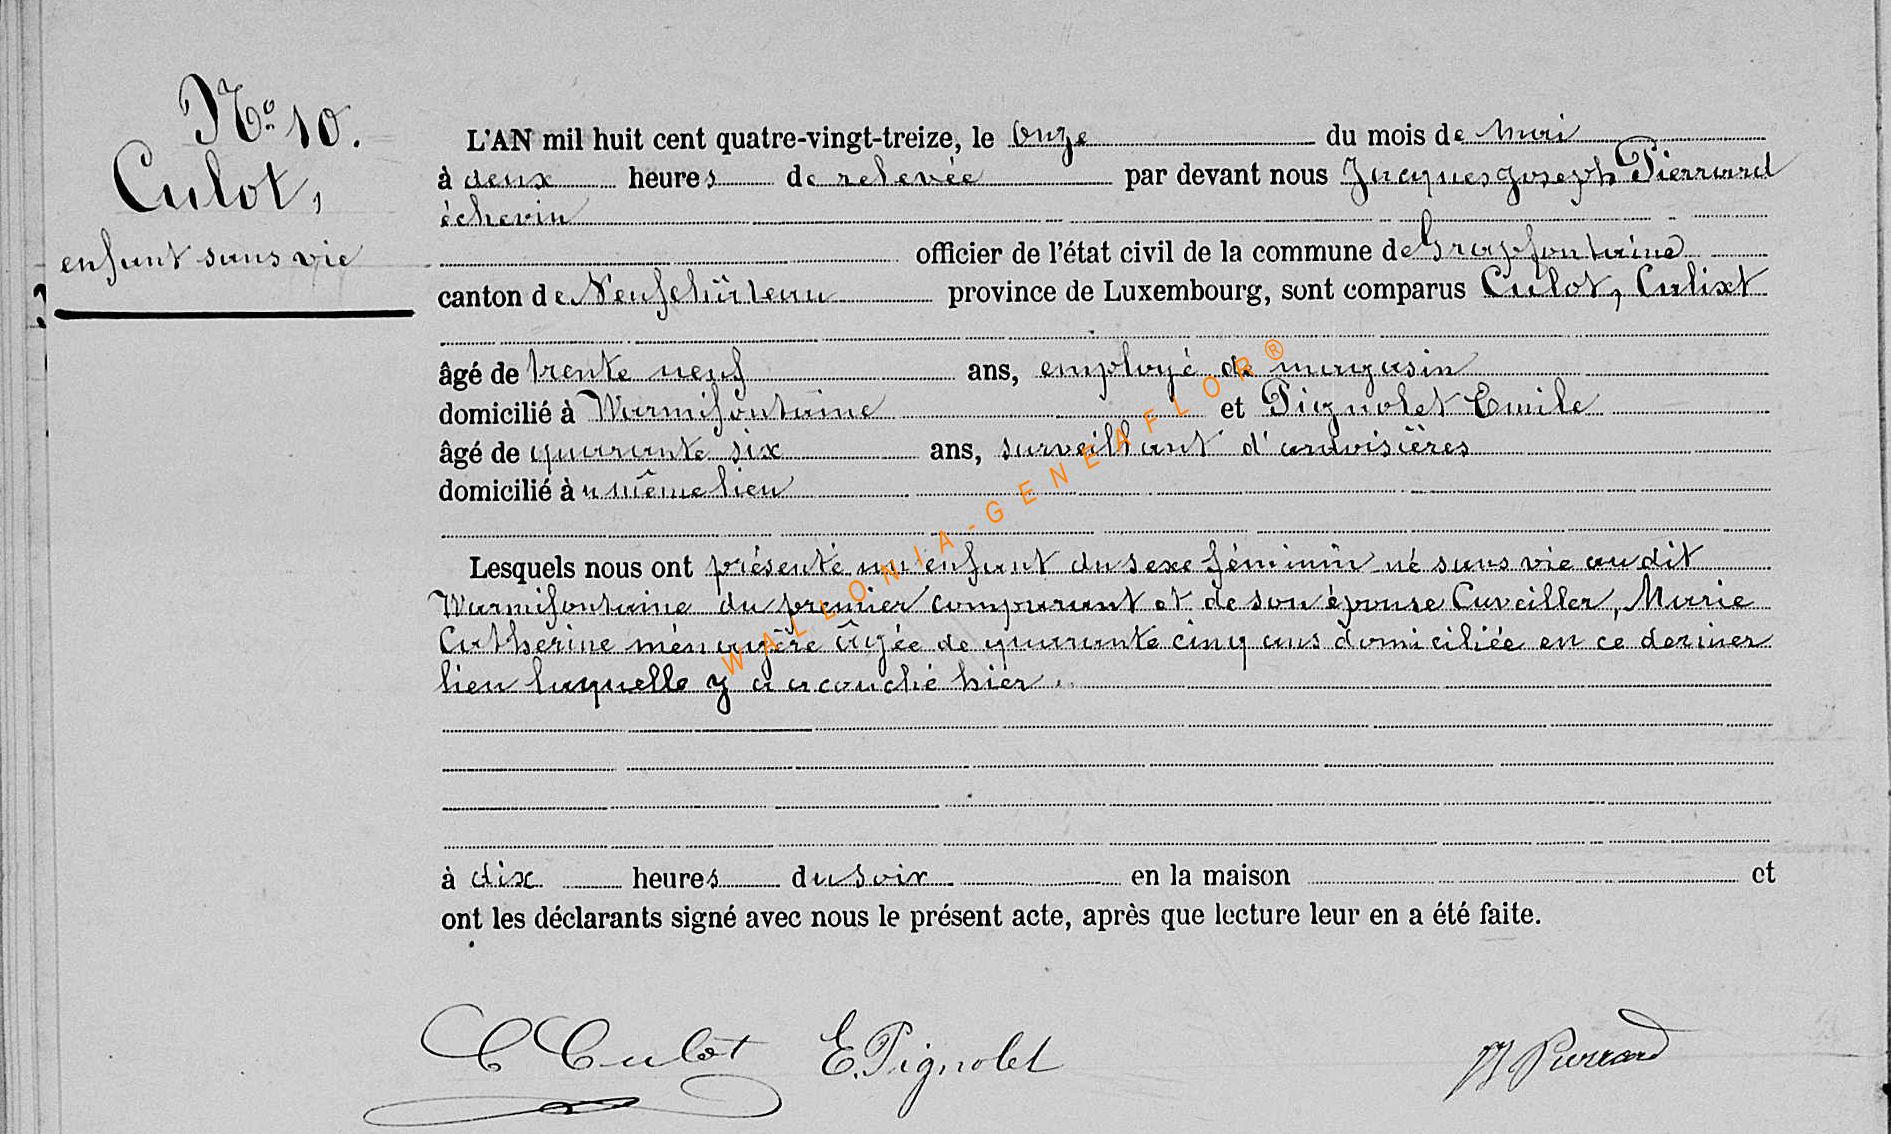 No. 10.
Culot,
enfant sans vie
L'AN mil huit cent quatre-vingt-treize, le onze du mois de mai
à deux heures de relevée par devant nous Jacques Joseph Pierrard
échevin
officier de l'état civil de la commune de Grapfontaine
canton de Neufchâteau province de Luxembourg, sont comparus Culot, Calixt
âgé de trente neuf ans, employé de magasin
domicilié à Warmifontaine et Pignolet Emile
âgé de quarante six ans, surveillant d'ardoisières
domicilié à u même lieu
Lesquels nous ont présenté un enfant du sexe féminin né sans vie au dit
Warmifontaine du premier comparant et de son épouse Cuveiller, Marie
Catherine ménagère âgée de quarante cinq ans domiciliée en ce dernier
lieu laquelle y a acouché hier.
à dix heures du soir en la maison et
ont les déclarants signé avec nous le présent acte, après que lecture leur en a été faite.
C Culot E. Pignolet JJ Pierrard
WALLONIA-GENEAFLOR®